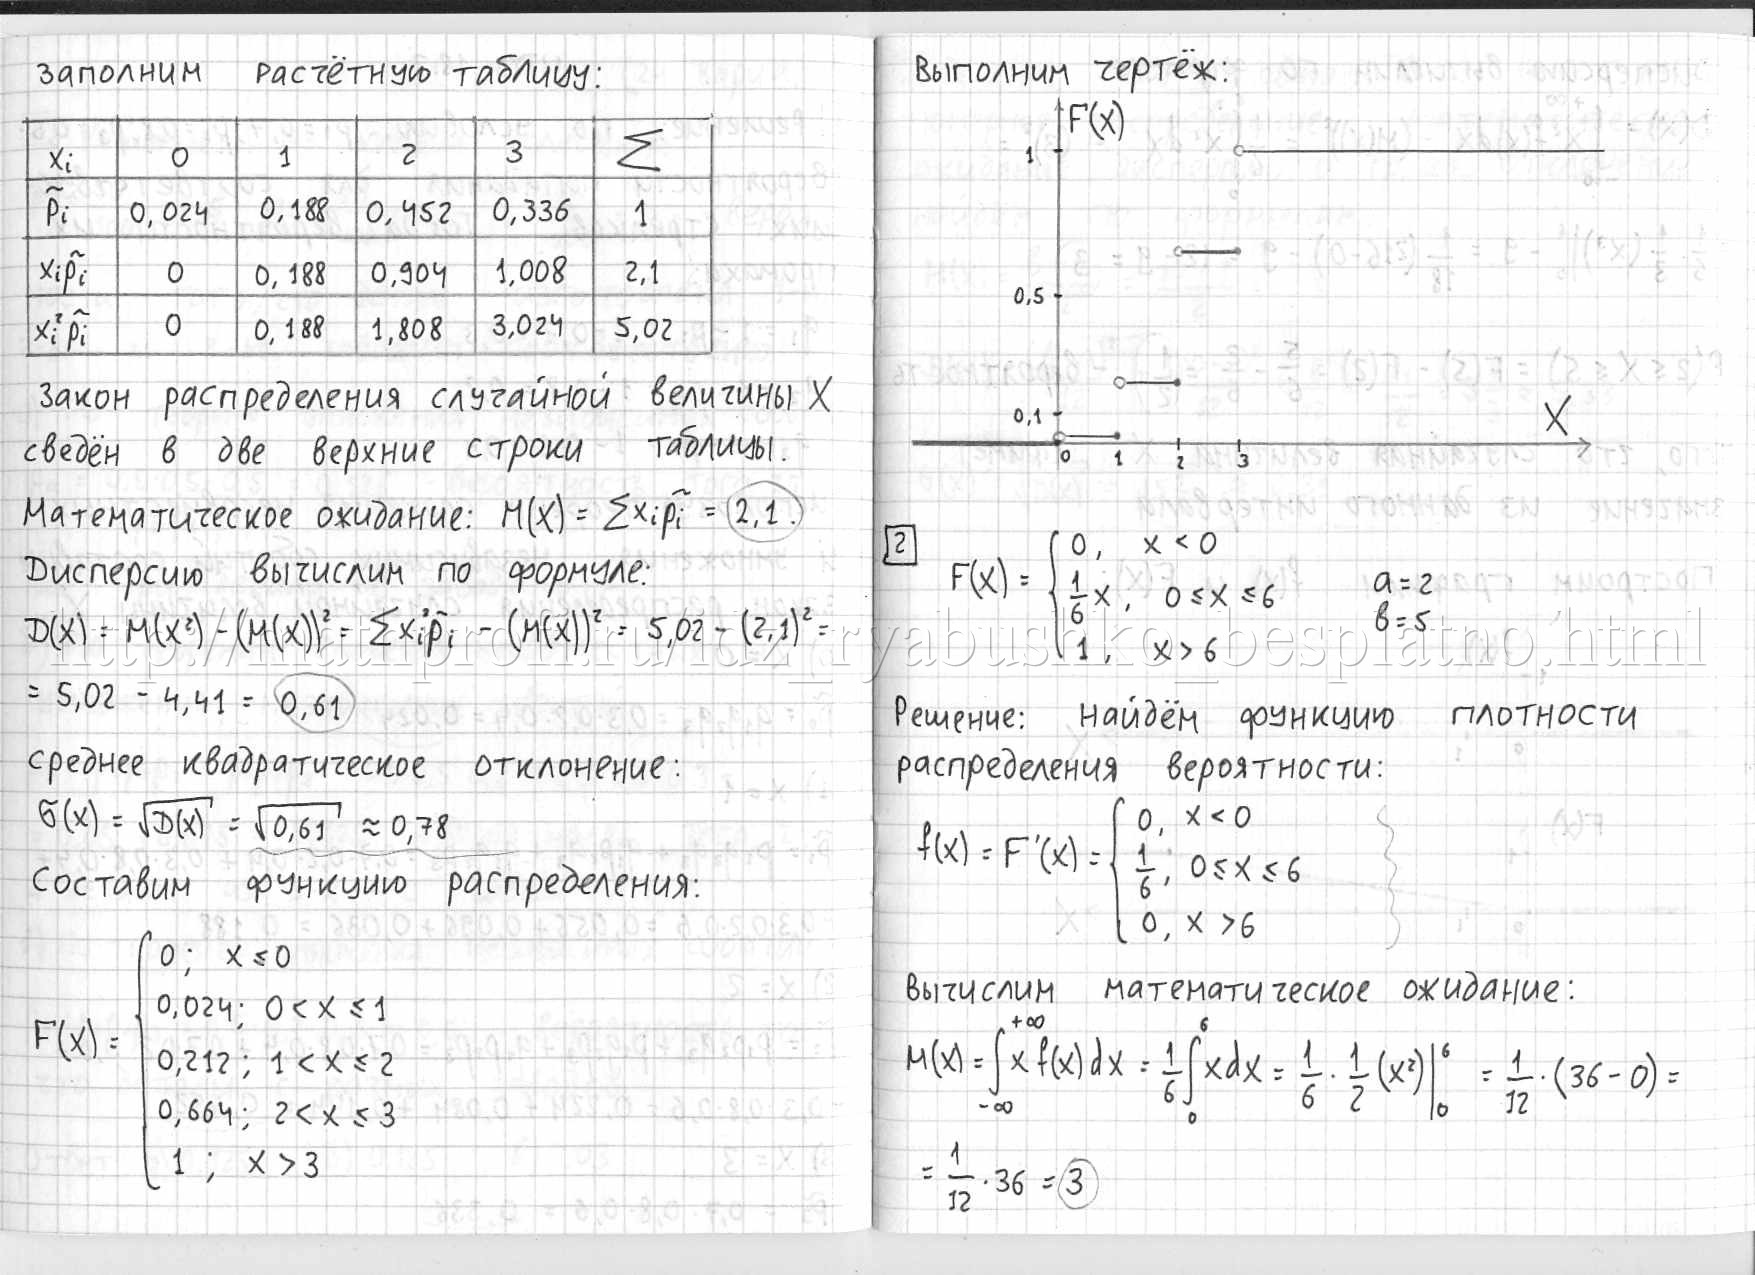 Заполним расчётную таблицу:
xᵢ 0 1 2 3 ∑
p̃ᵢ 0,024 0,188 0,452 0,336 1
xᵢp̃ᵢ 0 0,188 0,904 1,008 2,1
xᵢ²p̃ᵢ 0 0,188 1,808 3,024 5,02
Закон распределения случайной величины X
сведён в две верхние строки таблицы.
Математическое ожидание: M(X) = ∑xᵢp̃ᵢ = 2,1.
Дисперсию вычислим по формуле:
D(X) = M(X²) - (M(X))² = ∑xᵢ²p̃ᵢ - (M(X))² = 5,02 - (2,1)² =
= 5,02 - 4,41 = 0,61
среднее квадратическое отклонение:
σ(x) = √D(x) = √0,61 ≈ 0,78
Составим функцию распределения:
F(X) = { 0; x ≤ 0
0,024; 0 < x ≤ 1
0,212; 1 < x ≤ 2
0,664; 2 < x ≤ 3
1; x > 3
Выполним чертёж:
F(X)
1
0,5
0,1
X
0 1 2 3
2
F(X) = { 0, x < 0
1/6 x, 0 ≤ x ≤ 6
1, x > 6
a = 2
b = 5
http://mathprofi.ru/idz_ryabushko_besplatno.html
Решение: Найдём функцию плотности
распределения вероятности:
f(x) = F'(x) = { 0, x < 0
1/6, 0 ≤ x ≤ 6
0, x > 6
Вычислим математическое ожидание:
M(x) = ∫_{-∞}^{+∞} x f(x) dx = 1/6 ∫_0^6 x dx = 1/6 · 1/2 (x²)|_0^6 = 1/12 · (36 - 0) =
= 1/12 · 36 = 3